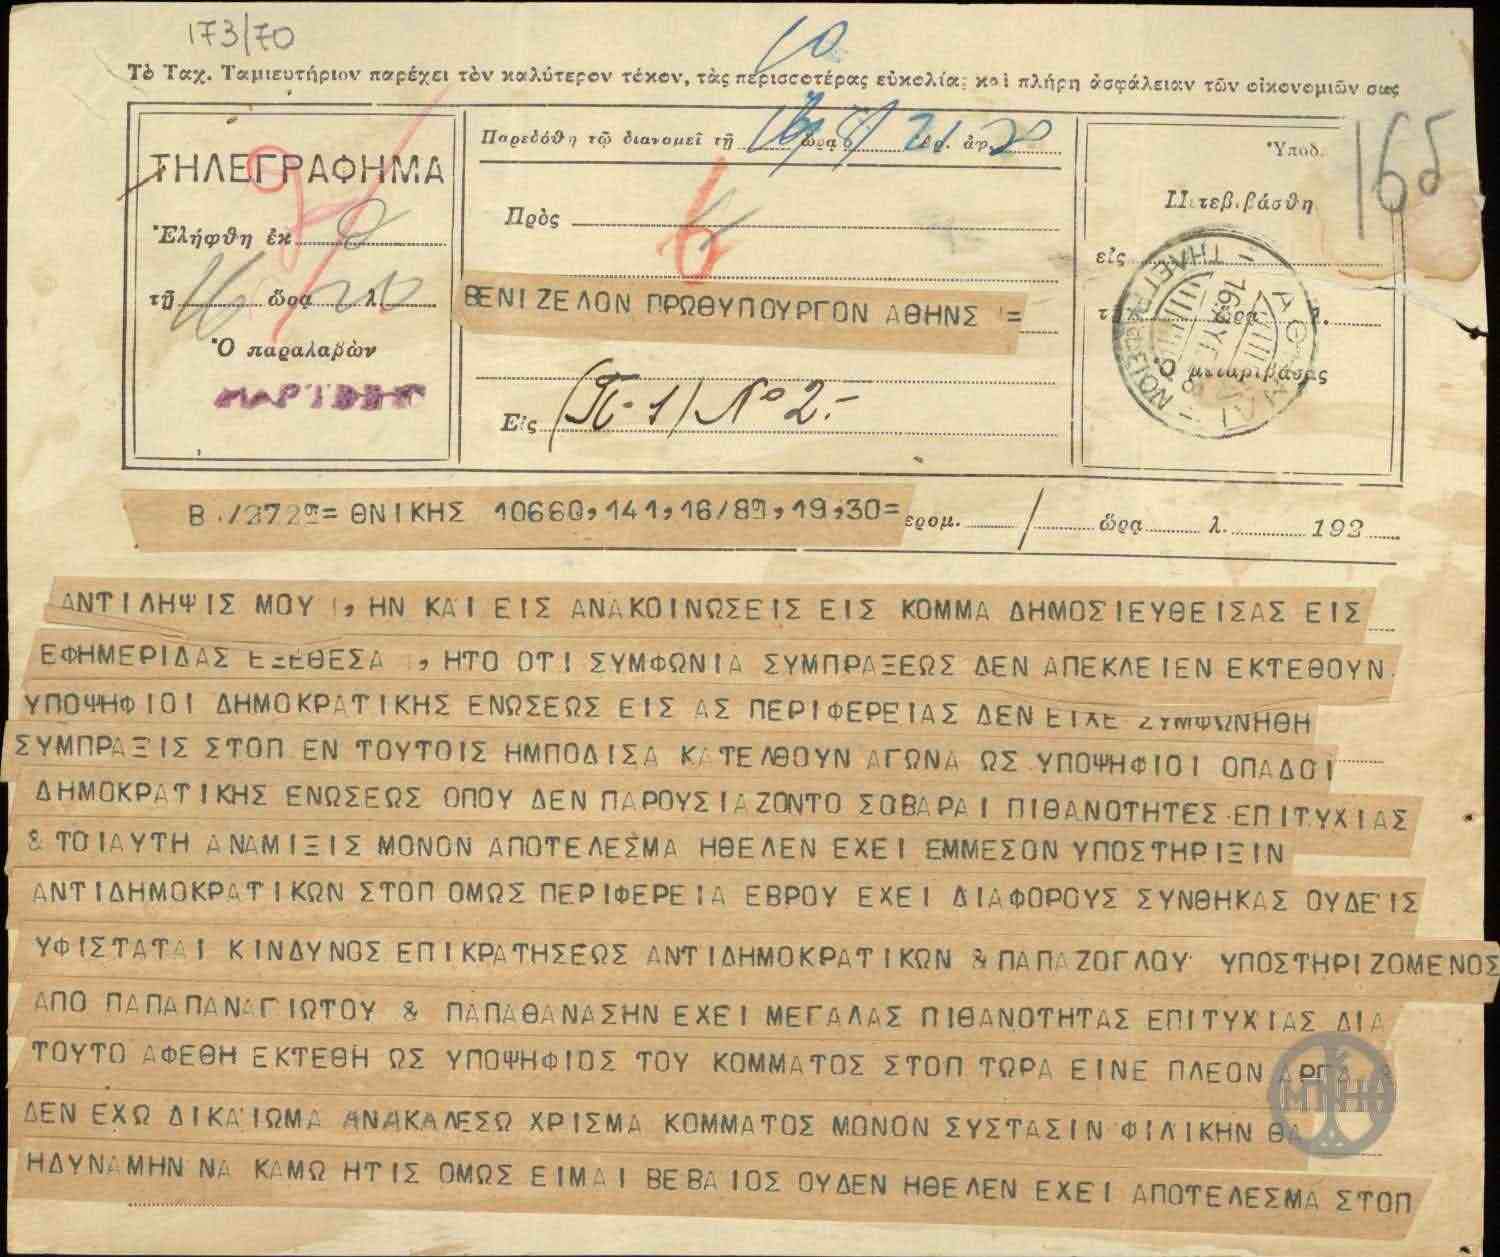 173/70
Τὸ Ταχ. Ταμιευτήριον παρέχει τὸν καλύτερον τόκον, τὰς περισσοτέρας εὐκολίας καὶ πλήρη ἀσφάλειαν τῶν οἰκονομιῶν σας
165
ΤΗΛΕΓΡΑΦΗΜΑ
Ἐλήφθη ἐκ
τῇ 16 ὥρα 20 λ.
Ὁ παραλαβὼν
ΜΑΡΤΙΝΗΣ
Παρεδόθη τῷ διανομεῖ τῇ 16/8/ ὥρα 21 ἀρ. 20
Πρὸς
ΒΕΝΙΖΕΛΟΝ ΠΡΩΘΥΠΟΥΡΓΟΝ ΑΘΗΝΣ =
Εἰς (Π-1) Νο 2.-
Ὑποδ.
Μετεβιβάσθη
εἰς
τῇ ὥρα λ.
Ὁ μεταβιβάσας
ΑΘΗΝΑΙ - ΤΗΛΕΓΡΑΦΕΙΟΝ -
16 ΑΥΓ
Β./272 = ΘΝΙΚΗΣ 10660,141,16/8,19,30=
ερομ. / ὥρα λ. 192
ΑΝΤΙΛΗΨΙΣ ΜΟΥ , ΗΝ ΚΑΙ ΕΙΣ ΑΝΑΚΟΙΝΩΣΕΙΣ ΕΙΣ ΚΟΜΜΑ ΔΗΜΟΣΙΕΥΘΕΙΣΑΣ ΕΙΣ
ΕΦΗΜΕΡΙΔΑΣ ΕΞΕΘΕΣΑ , ΗΤΟ ΟΤΙ ΣΥΜΦΩΝΙΑ ΣΥΜΠΡΑΞΕΩΣ ΔΕΝ ΑΠΕΚΛΕΙΕΝ ΕΚΤΕΘΟΥΝ
ΥΠΟΨΗΦΙΟΙ ΔΗΜΟΚΡΑΤΙΚΗΣ ΕΝΩΣΕΩΣ ΕΙΣ ΑΣ ΠΕΡΙΦΕΡΕΙΑΣ ΔΕΝ ΕΙΧΕ ΣΥΜΦΩΝΗΘΗ
ΣΥΜΠΡΑΞΙΣ ΣΤΟΠ ΕΝ ΤΟΥΤΟΙΣ ΗΜΠΟΔΙΣΑ ΚΑΤΕΛΘΟΥΝ ΑΓΩΝΑ ΩΣ ΥΠΟΨΗΦΙΟΙ ΟΠΑΔΟΙ
ΔΗΜΟΚΡΑΤΙΚΗΣ ΕΝΩΣΕΩΣ ΟΠΟΥ ΔΕΝ ΠΑΡΟΥΣΙΑΖΟΝΤΟ ΣΟΒΑΡΑΙ ΠΙΘΑΝΟΤΗΤΕΣ ΕΠΙΤΥΧΙΑΣ
& ΤΟΙΑΥΤΗ ΑΝΑΜΙΞΙΣ ΜΟΝΟΝ ΑΠΟΤΕΛΕΣΜΑ ΗΘΕΛΕΝ ΕΧΕΙ ΕΜΜΕΣΟΝ ΥΠΟΣΤΗΡΙΞΙΝ
ΑΝΤΙΔΗΜΟΚΡΑΤΙΚΩΝ ΣΤΟΠ ΟΜΩΣ ΠΕΡΙΦΕΡΕΙΑ ΕΒΡΟΥ ΕΧΕΙ ΔΙΑΦΟΡΟΥΣ ΣΥΝΘΗΚΑΣ ΟΥΔΕΙΣ
ΥΦΙΣΤΑΤΑΙ ΚΙΝΔΥΝΟΣ ΕΠΙΚΡΑΤΗΣΕΩΣ ΑΝΤΙΔΗΜΟΚΡΑΤΙΚΩΝ & ΠΑΠΑΖΟΓΛΟΥ ΥΠΟΣΤΗΡΙΖΟΜΕΝΟΣ
ΑΠΟ ΠΑΠΑΠΑΝΑΓΙΩΤΟΥ & ΠΑΠΑΘΑΝΑΣΗΝ ΕΧΕΙ ΜΕΓΑΛΑΣ ΠΙΘΑΝΟΤΗΤΑΣ ΕΠΙΤΥΧΙΑΣ ΔΙΑ
ΤΟΥΤΟ ΑΦΕΘΗ ΕΚΤΕΘΗ ΩΣ ΥΠΟΨΗΦΙΟΣ ΤΟΥ ΚΟΜΜΑΤΟΣ ΣΤΟΠ ΤΩΡΑ ΕΙΝΕ ΠΛΕΟΝ ΑΡΓΑ &
ΔΕΝ ΕΧΩ ΔΙΚΑΙΩΜΑ ΑΝΑΚΑΛΕΣΩ ΧΡΙΣΜΑ ΚΟΜΜΑΤΟΣ ΜΟΝΟΝ ΣΥΣΤΑΣΙΝ ΦΙΛΙΚΗΝ ΘΑ
ΗΔΥΝΑΜΗΝ ΝΑ ΚΑΜΩ ΗΤΙΣ ΟΜΩΣ ΕΙΜΑΙ ΒΕΒΑΙΟΣ ΟΥΔΕΝ ΗΘΕΛΕΝ ΕΧΕΙ ΑΠΟΤΕΛΕΣΜΑ ΣΤΟΠ